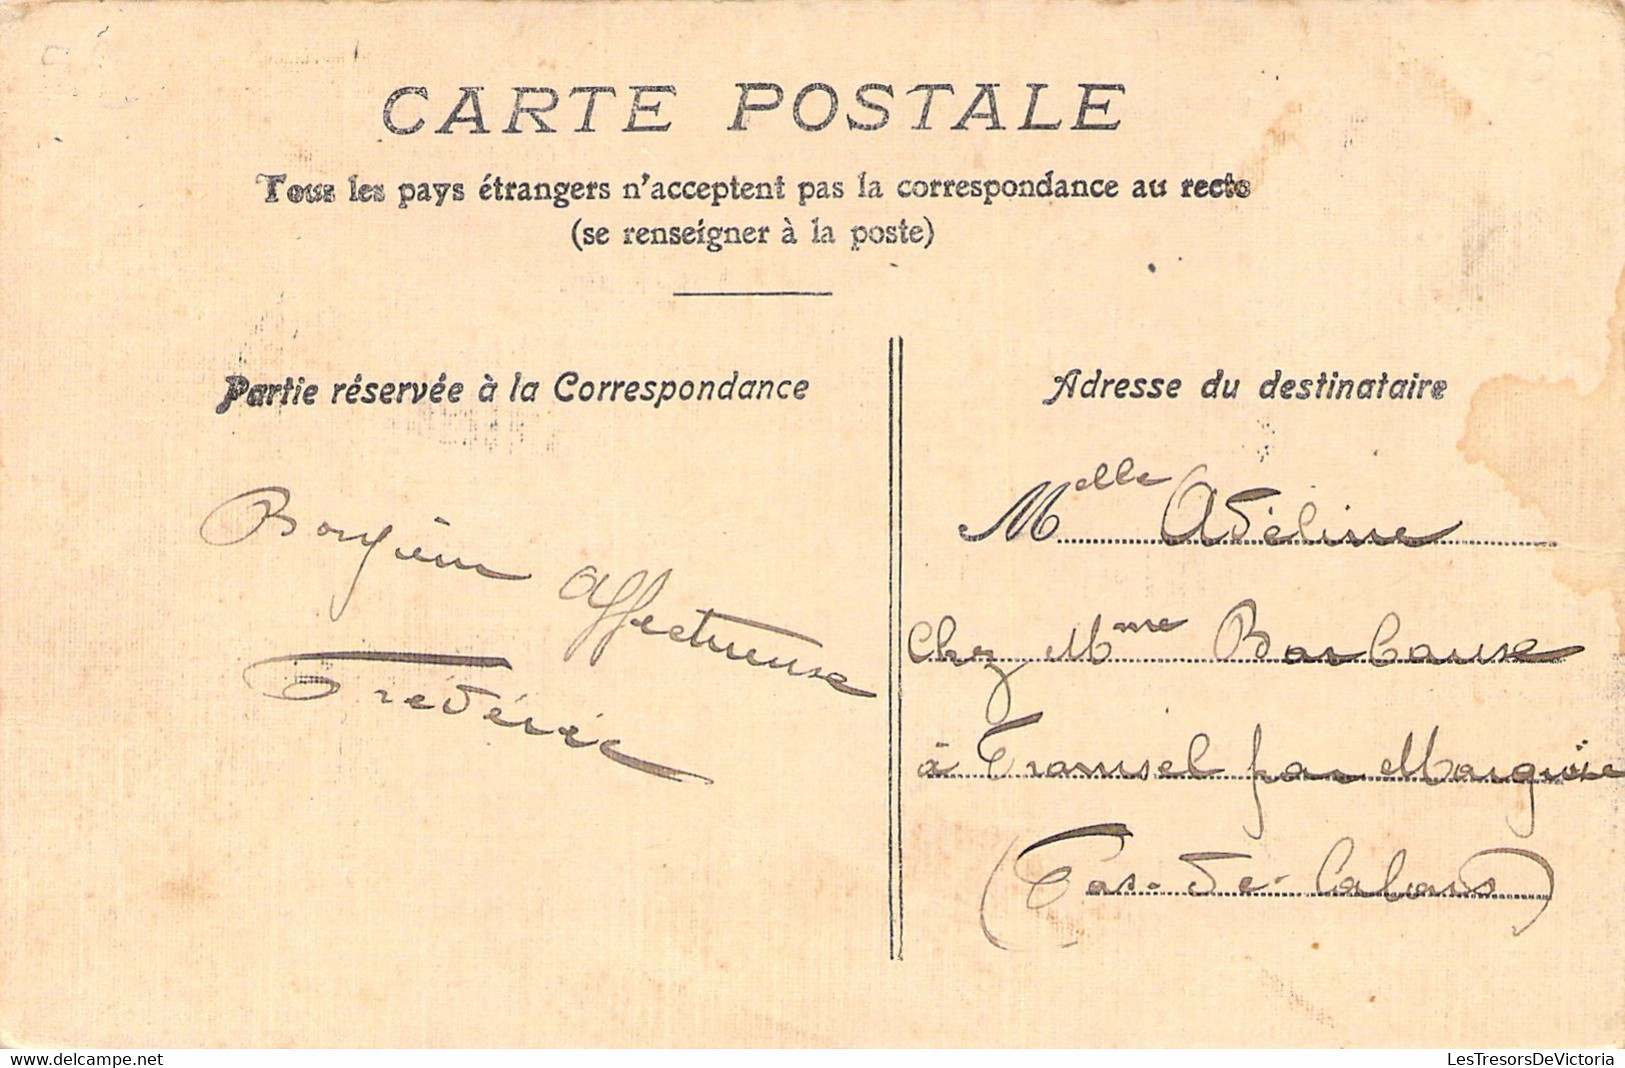 CARTE POSTALE
Tous les pays étrangers n'acceptent pas la correspondance au recto
(se renseigner à la poste)
Partie réservée à la Correspondance
Adresse du destinataire
affectueuse
Frédéric
Melle Adéline
Chez Mme Barbause
à Tramsel par
(Pas-de-Calais)
www.delcampe.net
LesTresorsDeVictoria